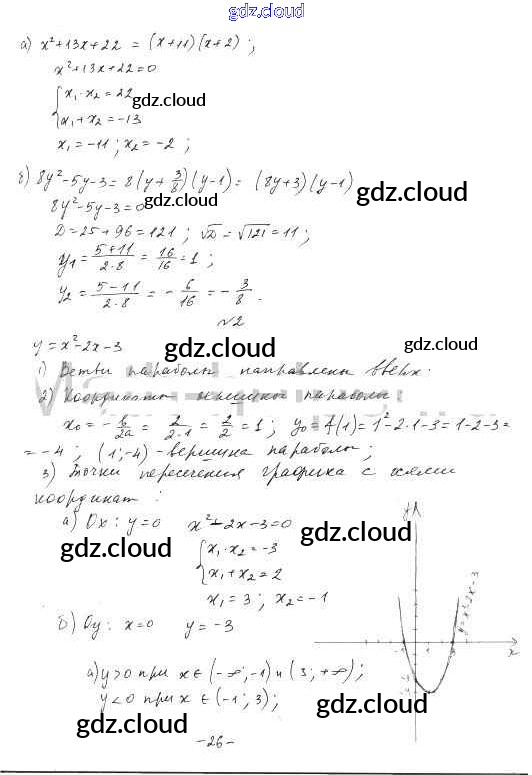 gdz.cloud
gdz.cloud
а) x²+13x+22 = (x+11)(x+2) ;
x²+13x+22=0
{ x₁·x₂=22
x₁+x₂=-13
gdz.cloud
x₁=-11 ; x₂=-2 ;
б) 8y²-5y-3=8(y+3/8)(y-1)= (8y+3)(y-1)
8y²-5y-3=0
gdz.cloud
gdz.cloud
D=25+96=121 ; √D=√121=11 ;
y₁=(5+11)/(2·8)=16/16=1 ;
y₂=(5-11)/(2·8)=-6/16=-3/8.
№2
y=x²-2x-3
gdz.cloud
gdz.cloud
1) Ветви параболы направлены вверх.
2) Координаты вершины параболы
x₀=-b/2a=2/(2·1)=2/2=1 ; y₀=f(1)=1²-2·1-3=1-2-3=
=-4 ; (1;-4)-вершина параболы ;
3) Точки пересечения графика с осями
координат :
gdz.cloud
а) Ox: y=0 x²-2x-3=0
gdz.cloud
gdz.cloud
{ x₁·x₂=-3
x₁+x₂=2
x₁=3 ; x₂=-1
б) Oy: x=0 y=-3
gdz.cloud
gdz.cloud
y=x²-2x-3
-1
1
3
x
а) y>0 при x∈(-∞;-1) и (3;+∞) ;
y<0 при x∈(-1;3) ;
gdz.cloud
gdz.cloud
-26-